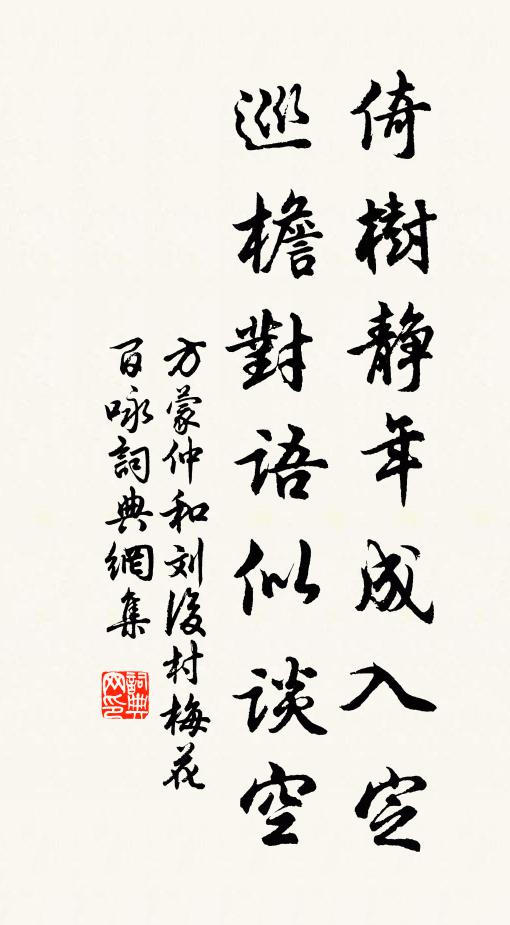 倚樹静年成入定
巡檐對語似谈空
方蒙仲和刘後村梅花
百咏詞典網集
詞典网印